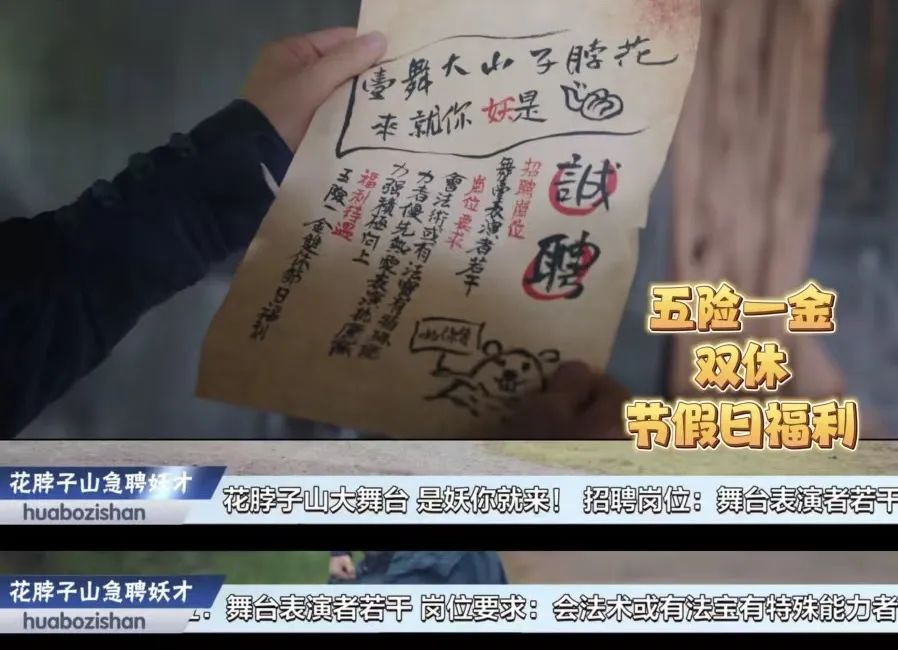 花脖子山大舞臺
是妖你就來
誠聘
招聘岗位
舞臺表演者若干
岗位要求
會法術或有法寶有特殊能
力者優先熱愛表演抗壓能
力强積極向上
福利待遇
五險一金雙休節日福利
五险一金
双休
节假日福利
花脖子山急聘妖才
huabozishan
花脖子山大舞台 是妖你就来! 招聘岗位:舞台表演者若干
花脖子山急聘妖才
huabozishan
:舞台表演者若干 岗位要求:会法术或有法宝有特殊能力者